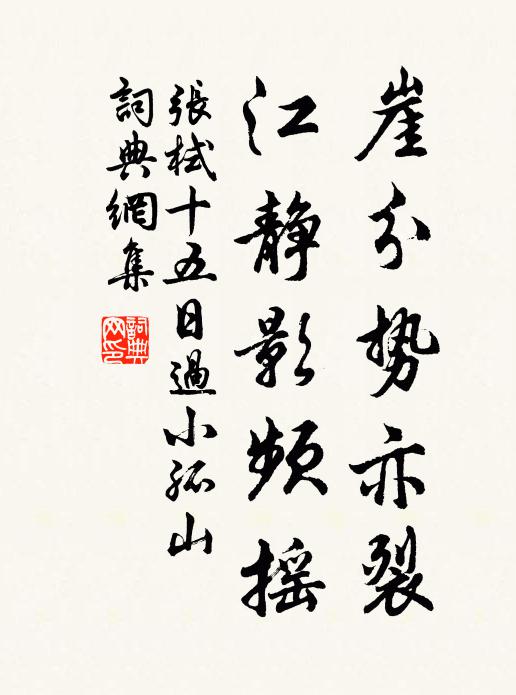 崖分势亦裂
江静影频摇
張栻十五日過小孤山
詞典網集
詞典网印